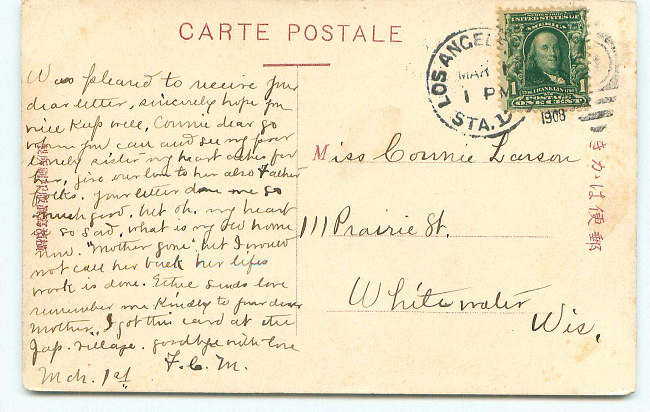 CARTE POSTALE
Was pleased to receive your
dear letter, sincerely hope you
will keep well, Connie dear go
when you can and see my poor
lonely sister my heart aches for
her, give our love to her also Father
folks. Your letter done me so
much good, but oh, my heart
so sad, what is my old home
now. "Mother gone" but I would
not call her back her lifes
work is done. Ethel sends love
remember me kindly to your dear
Mother. I got this card at the
Jap. village. goodbye with love
F. C. M.
Mch. 1st
LOS ANGEL
MAR
1 PM
1908
STA. 1
SERIES 1902
UNITED STATES OF AMERICA
FRANKLIN
1 1
POSTAGE
ONE CENT
Miss Connie Larson
111 Prairie St.
Whitewater
Wis.
きかは便郵